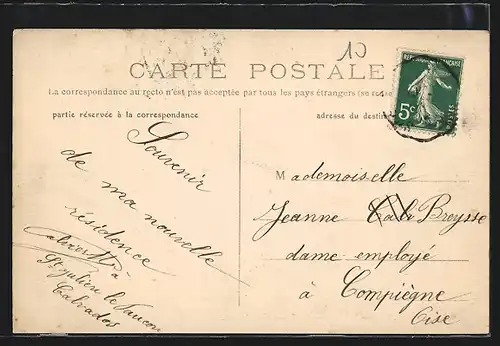 10
CARTE POSTALE
REPUBLIQUE FRANÇAISE
5c
POSTES
La correspondance au recto n'est pas acceptée par tous les pays étrangers (se
partie réservée à la correspondance
adresse du destin
Souvenir
de ma nouvelle
résidence
à
St Julien le Faucon
Calvados
Mademoiselle
Jeanne Breysse
dame employé
à Compiègne
Oise